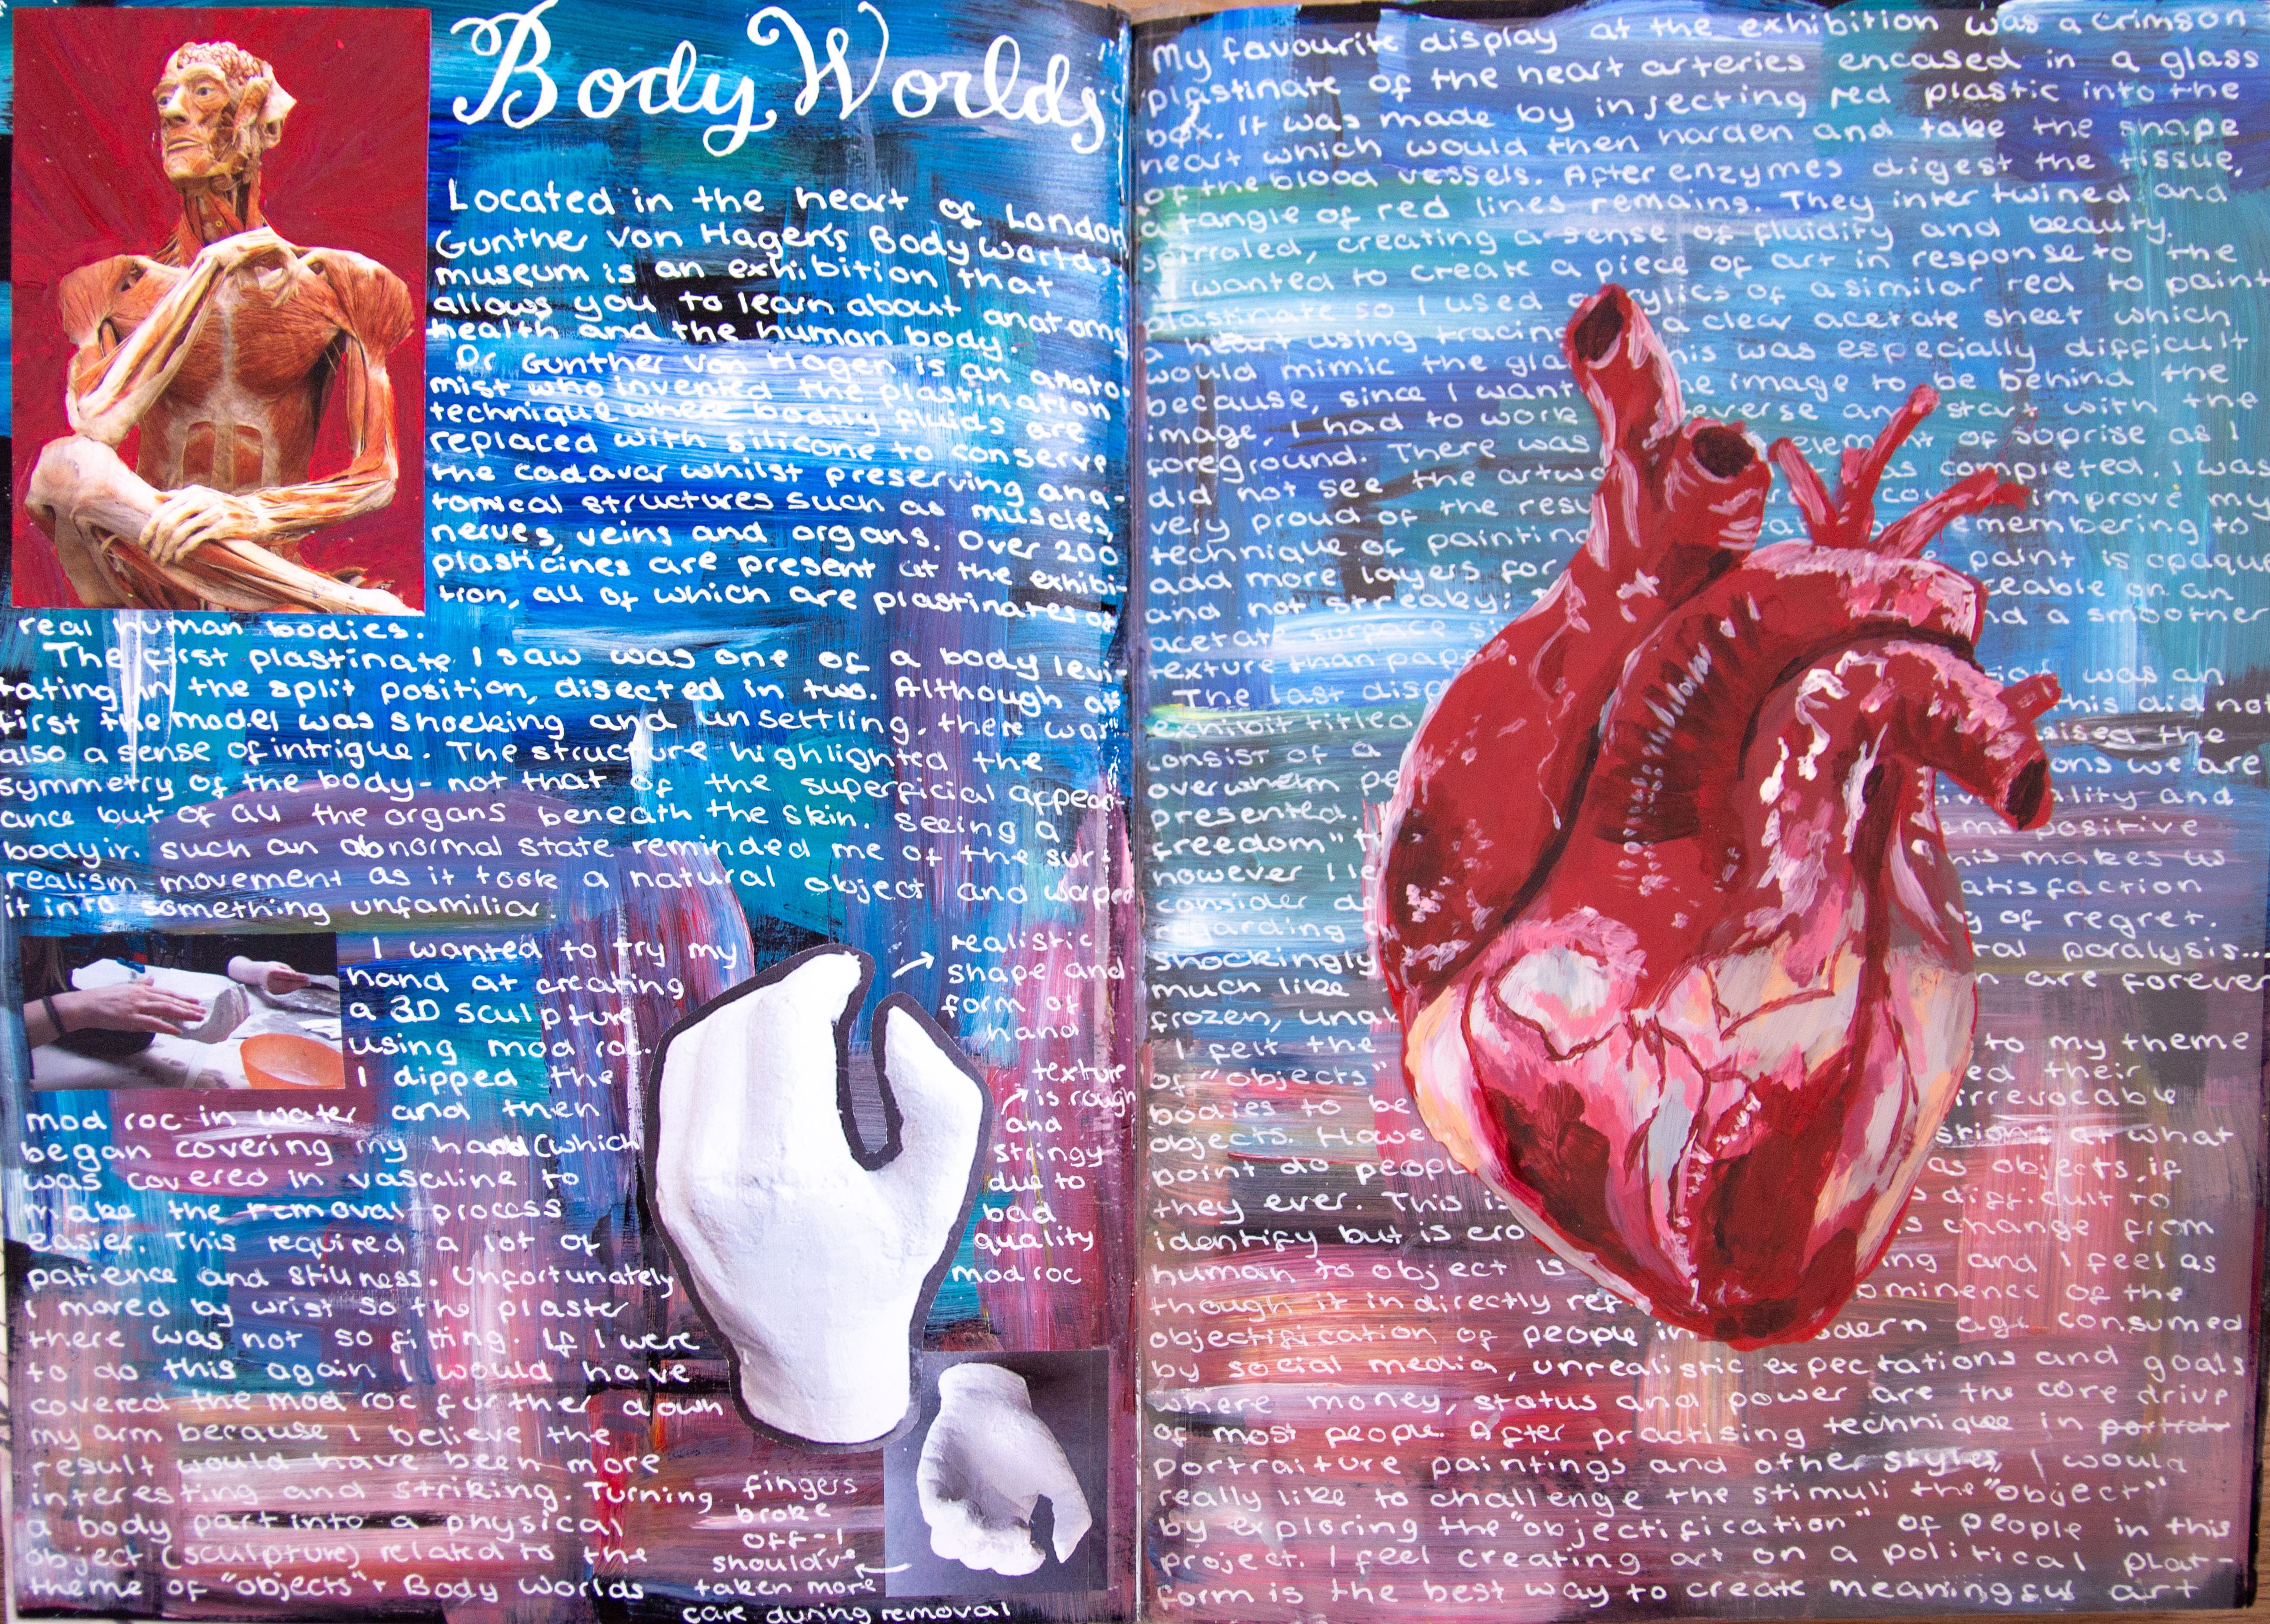 Body Worlds
Located in the heart of London
Gunther von Hagen's Body Worlds
museum is an exhibition that
allows you to learn about anatomy
health and the human body.
Dr Gunther von Hagen is an anato
mist who invented the plastination
technique where bodily fluids are
replaced with silicone to conserve
the cadavar whilst preserving ana-
tomical structures such as muscles,
nerves, veins and organs. Over 200
plasticines are present at the exhibi-
tion, all of which are plastinates of
real human bodies.
The first plastinate I saw was one of a body levi-
tating in the split position, disected in two. Although at
first the model was shocking and unsettling, there was
also a sense of intrigue. The structure highlighted the
symmetry of the body - not that of the superficial appear-
ance but of all the organs beneath the skin. Seeing a
body in such an abnormal state reminded me of the sur-
realism movement as it took a natural object and warped
it into something unfamiliar.
I wanted to try my
hand at creating
a 3D sculpture
using mod roc.
I dipped the
mod roc in water and then
began covering my hand (which
was covered in vasaline to
make the removal process
easier. This required a lot of
patience and stillness. Unfortunately
I moved by wrist so the plaster
there was not so fitting. If I were
to do this again I would have
covered the mod roc further down
my arm because I believe the
result would have been more
interesting and striking. Turning
a body part into a physical
object (sculpture) related to the
theme of "objects" + Body Worlds
realistic
shape and
form of
hand
texture
is rough
and
stringy
due to
bad
quality
mod roc
fingers
broke
off - I
should've
taken more
care during removal
My favourite display at the exhibition was a crimson
plastinate of the heart arteries encased in a glass
box. It was made by injecting red plastic into the
heart which would then harden and take the shape
of the blood vessels. After enzymes digest the tissue,
a tangle of red lines remains. They inter twined and
spirraled, creating a sense of fluidity and beauty.
I wanted to create a piece of art in response to the
plastinate so I used acrylics of a similar red to paint
a heart using tracing a clear acetate sheet which
would mimic the gla his was especially difficult
because, since I want he image to be behind the
image, I had to work everse and start with the
foreground. There was element of suprise as I
did not see the artwo as completed. I was
very proud of the resu improve my
technique of painting emembering to
add more layers for paint is opaque
and not streaky; eable on an
acetate surface si nd a smoother
texture than pap
The last disp was an
exhibit titled his did not
consist of a ised the
overwhelm pe ons we are
presented. ality and
freedom" positive
however I le his makes us
consider de atisfaction
regarding a y of regret.
shockingly tal paralysis...
much like n are forever
frozen, unab
I felt the to my theme
of "objects" ed their
bodies to be irrevocable
objects. Howe stions at what
point do peopl as objects, if
they ever. This is difficult to
identify but is ero s change from
human to object is ing and I feel as
though it indirectly ref ominence of the
objectification of people in odern age consumed
by social media, unrealistic expectations and goals
where money, status and power are the core drive
of most people. After practising technique in
portraiture paintings and other styles, I would
really like to challenge the stimuli the "object"
by exploring the "objectification" of people in this
project. I feel creating art on a political plat-
form is the best way to create meaningful art